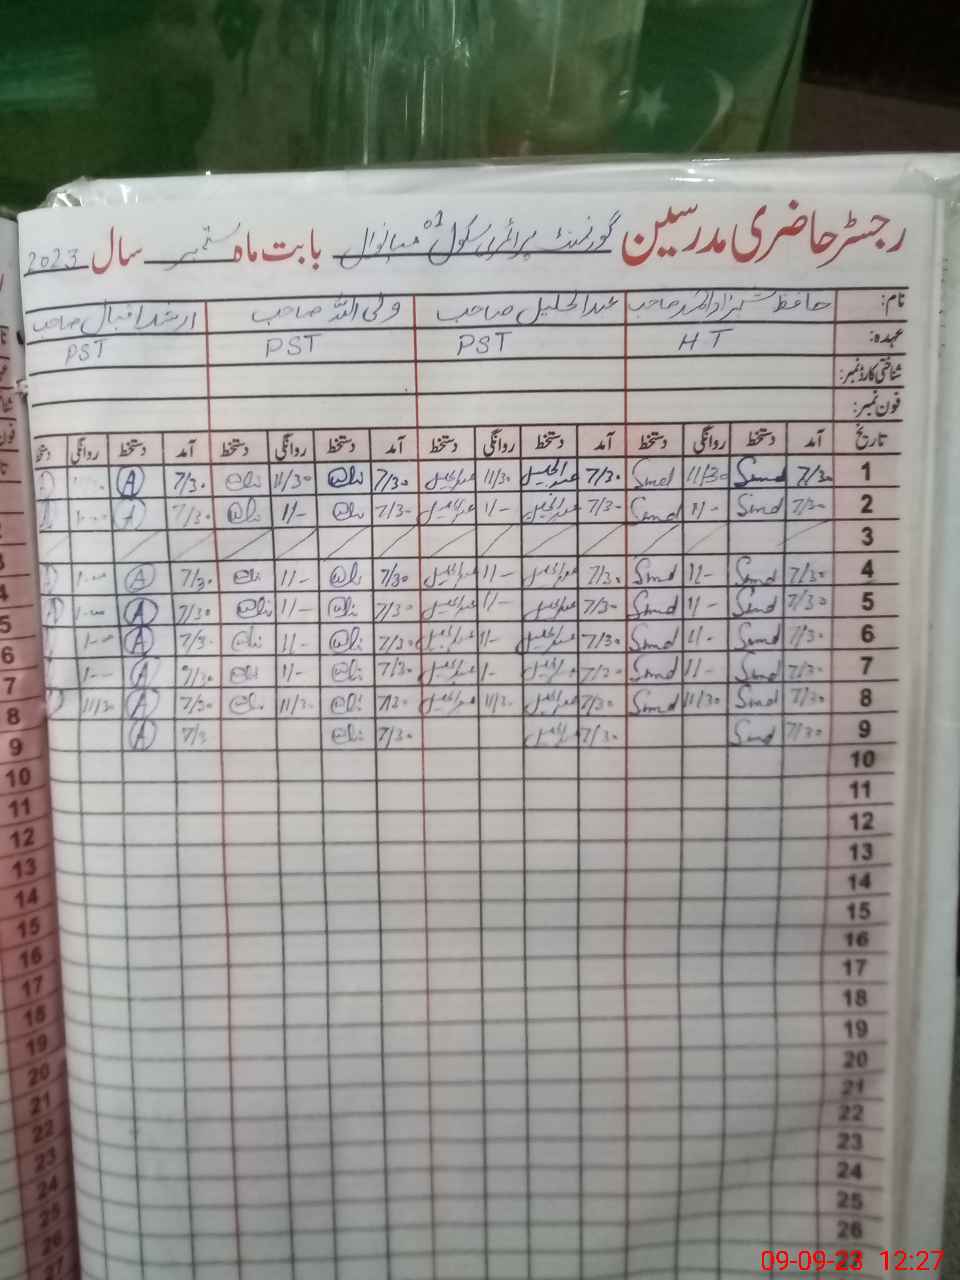 رجسٹر حاضری مدرسین گورنمنٹ پرائمری سکول بابت ماہ ستمبر سال 2023
نام: حافظ صاحب عبدالجلیل صاحب ولی اللہ صاحب ارشد اقبال صاحب
عہدہ: HT PST PST PST
شناختی کارڈ نمبر:
فون نمبر:
تاریخ آمد دستخط روانگی دستخط آمد دستخط روانگی دستخط آمد دستخط روانگی دستخط آمد دستخط روانگی دستخط
1 7/30 Smd 11/30 Smd 7/30 عبدالجلیل 11/30 عبدالجلیل 7/30 @li 11/30 @li 7/30 A
2 7/30 Smd 11/- Smd 7/30 عبدالجلیل 11/- عبدالجلیل 7/30 @li 11/- @li 7/30 A
3
4 7/30 Smd 11/- Smd 7/30 عبدالجلیل 11/- عبدالجلیل 7/30 @li 11/- @li 7/30 A
5 7/30 Smd 11/- Smd 7/30 عبدالجلیل 11/- عبدالجلیل 7/30 @li 11/- @li 7/30 A
6 7/30 Smd 11/- Smd 7/30 عبدالجلیل 11/- عبدالجلیل 7/30 @li 11/- @li 7/30 A
7 7/30 Smd 11/- Smd 7/30 عبدالجلیل 11/- عبدالجلیل 7/30 @li 11/- @li 7/30 A
8 7/30 Smd 11/30 Smd 7/30 عبدالجلیل 11/30 عبدالجلیل 7/30 @li 11/30 @li 7/30 A 11/30
9 7/30 Smd 7/30 عبدالجلیل 7/30 @li 7/3 A
10
11
12
13
14
15
16
17
18
19
20
21
22
23
24
25
26
27
09-09-23 12:27